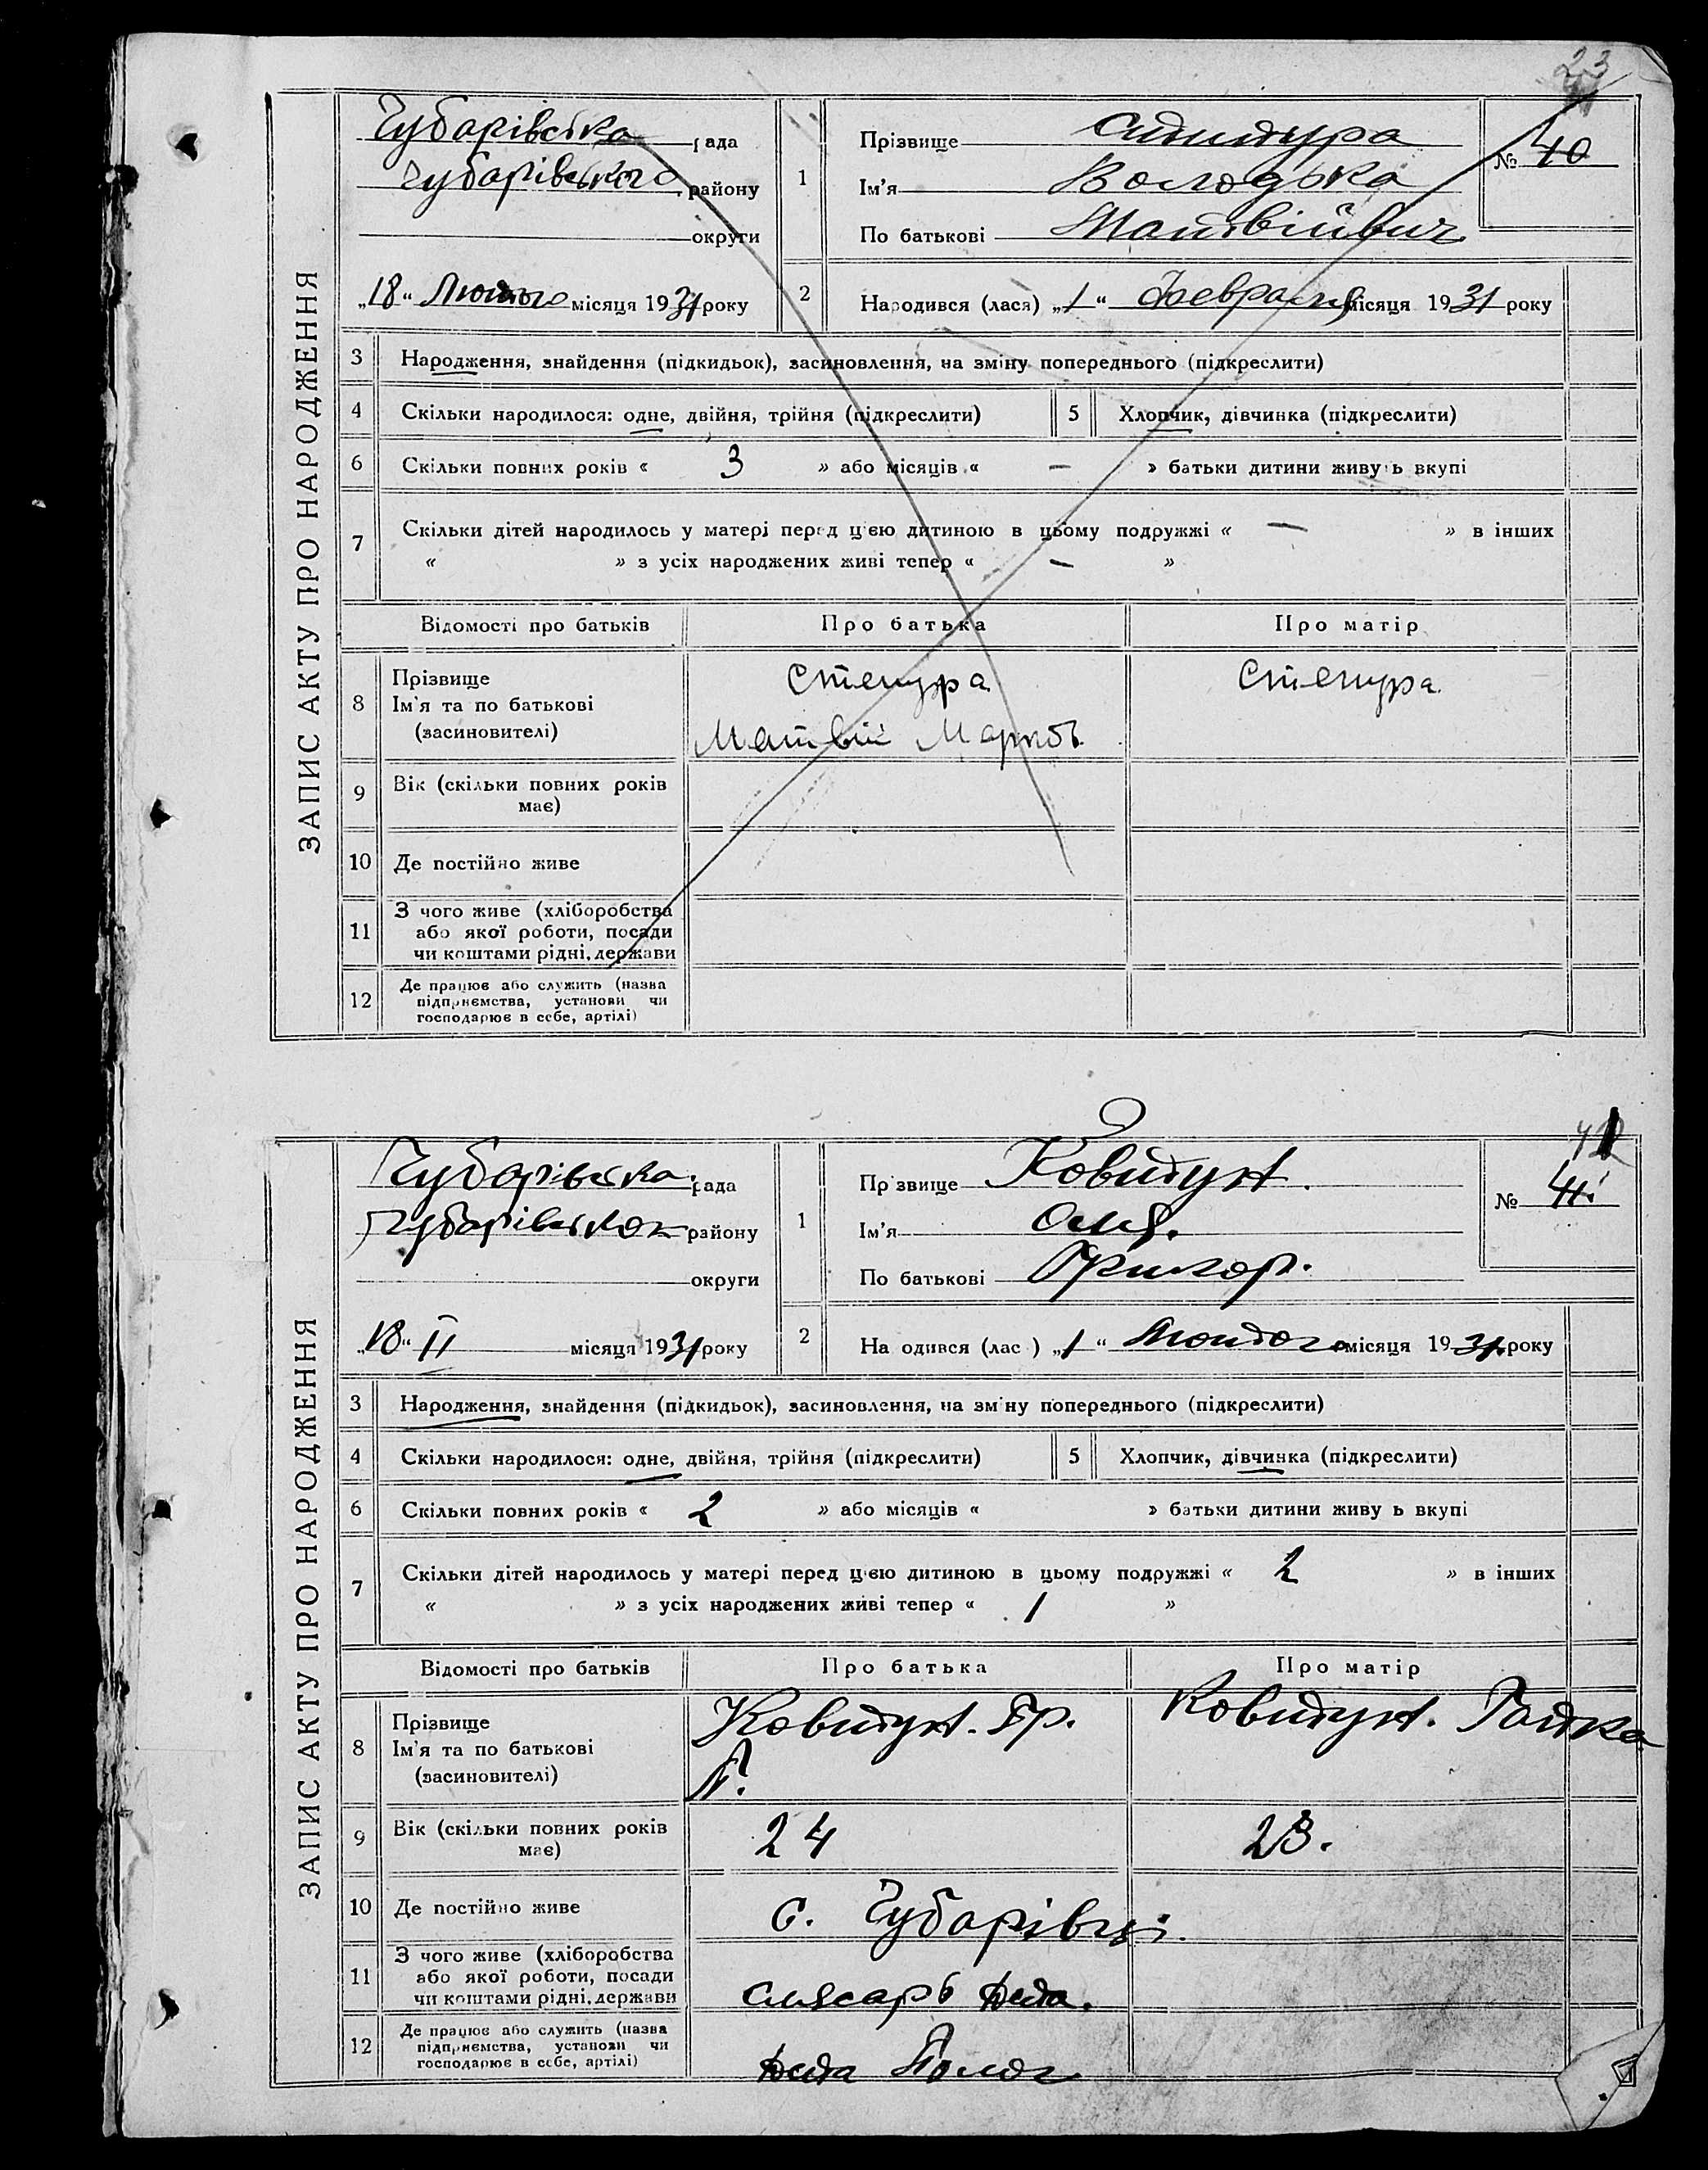 23
ЗАПИС АКТУ ПРО НАРОДЖЕННЯ
Чубарівська рада
Чубарівського району
округи
„18“ Лютого місяця 1931 року
1
Прізвище
Ім'я Володька
По батькові Матвійович
№ 40
2
Народився (лася) „1“ Февраля місяця 1931 року
3 Народження, знайдення (підкидьок), засиновлення, на зміну попереднього (підкреслити)
4 Скільки народилося: одне, двійня, трійня (підкреслити)
5 Хлопчик, дівчинка (підкреслити)
6 Скільки повних років « 3 » або місяців « — » батьки дитини живу ь вкупі
7 Скільки дітей народилось у матері перед цією дитиною в цьому подружжі « — » в інших
« » з усіх народжених живі тепер « — »
Відомості про батьків Про батька Про матір
8 Прізвище
Ім'я та по батькові
(засиновителі)
Стецура
Матвій Марков.
Стецура
9 Вік (скільки повних років
має)
10 Де постійно живе
11 З чого живе (хліборобства
або якої роботи, посади
чи коштами рідні, держави
12 Де працює або служить (назва
підприємства, установи чи
господарює в себе, артілі)
ЗАПИС АКТУ ПРО НАРОДЖЕННЯ
Чубарівська рада
району
округи
„18“ II місяця 1931 року
1
Пр звище Ковтун.
Ім'я Оля.
По батькові Григор.
№ 41
2
На одився (лас ) „1“ Лютого місяця 1931. року
3 Народження, знайдення (підкидьок), засиновлення, на зм ну попереднього (підкреслити)
4 Скільки народилося: одне, двійня, трійня (підкреслити)
5 Хлопчик, дівчинка (підкреслити)
6 Скільки повних років « 2 » або місяців « » батьки дитини живу ь вкупі
7 Скільки дітей народилось у матері перед цією дитиною в цьому подружжі « 2 » в інших
« » з усіх народжених живі тепер « 1 »
Відомості про батьків Про батька Про матір
8 Прізвище
Ім'я та по батькові
(засиновителі)
Ковтун. Гр.
Ковтун.
9 Вік (скільки повних років
має)
24
23.
10 Де постійно живе
с. Чубарівці.
11 З чого живе (хліборобства
або якої роботи, посади
чи коштами рідні, держави
слясарь Депа.
12 Де працює або служить (назва
підприємства, установи чи
господарює в себе, артілі)
Депа Полог